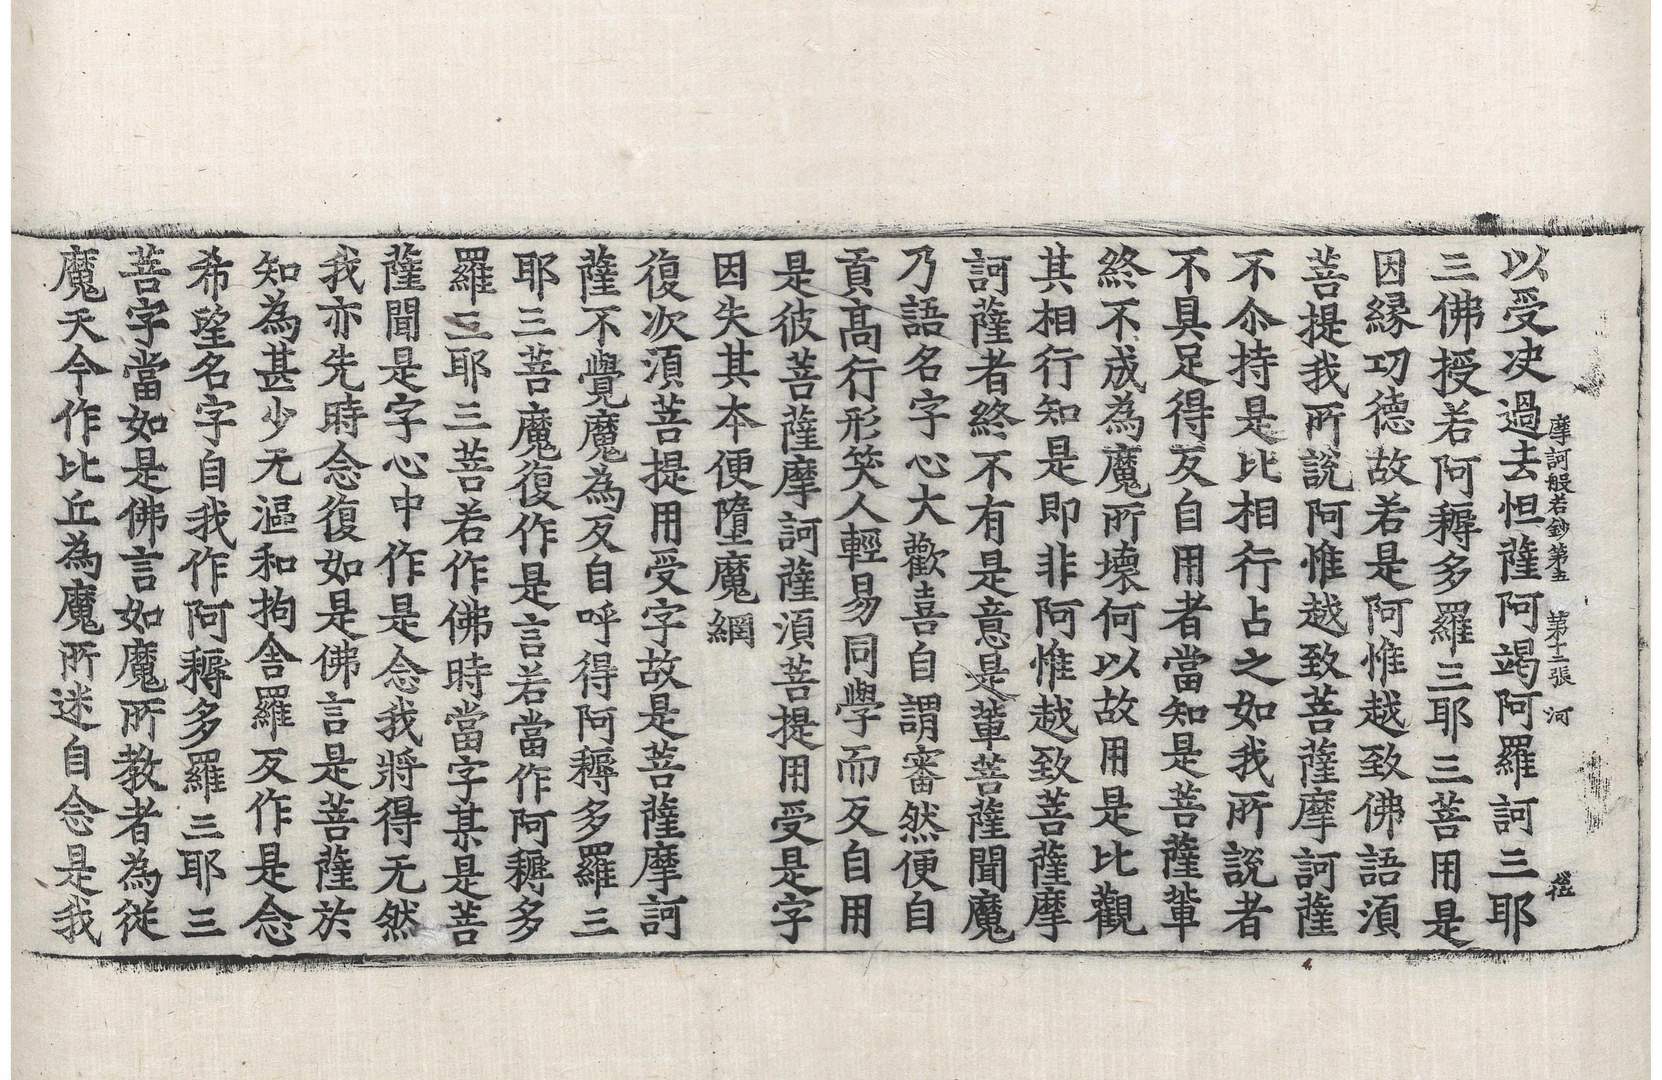 摩訶般若鈔第五 第十二張 河
以受决過去怛薩阿竭阿羅訶三耶
三佛授若阿耨多羅三耶三菩用是
因縁功德故若是阿惟越致佛語須
菩提我所說阿惟越致菩薩摩訶薩
不尒持是比相行占之如我所說者
不具足得反自用者當知是菩薩輩
終不成為魔所壞何以故用是比觀
其相行知是即非阿惟越致菩薩摩
訶薩者終不有是意是輩菩薩聞魔
乃語名字心大歡喜自謂審然便自
貢髙行形笑人輕易同學而反自用
是彼菩薩摩訶薩須菩提用受是字
因失其本便墮魔網
復次須菩提用受字故是菩薩摩訶
薩不覺魔為反自呼得阿耨多羅三
耶三菩魔復作是言若當作阿耨多
羅三耶三菩若作佛時當字某是菩
薩聞是字心中作是念我將得无然
我亦先時念復如是佛言是菩薩於
知為甚少无漚和拘舍羅反作是念
希望名字自我作阿耨多羅三耶三
菩字當如是佛言如魔所教者為從
魔天令作比丘為魔所迷自念是我